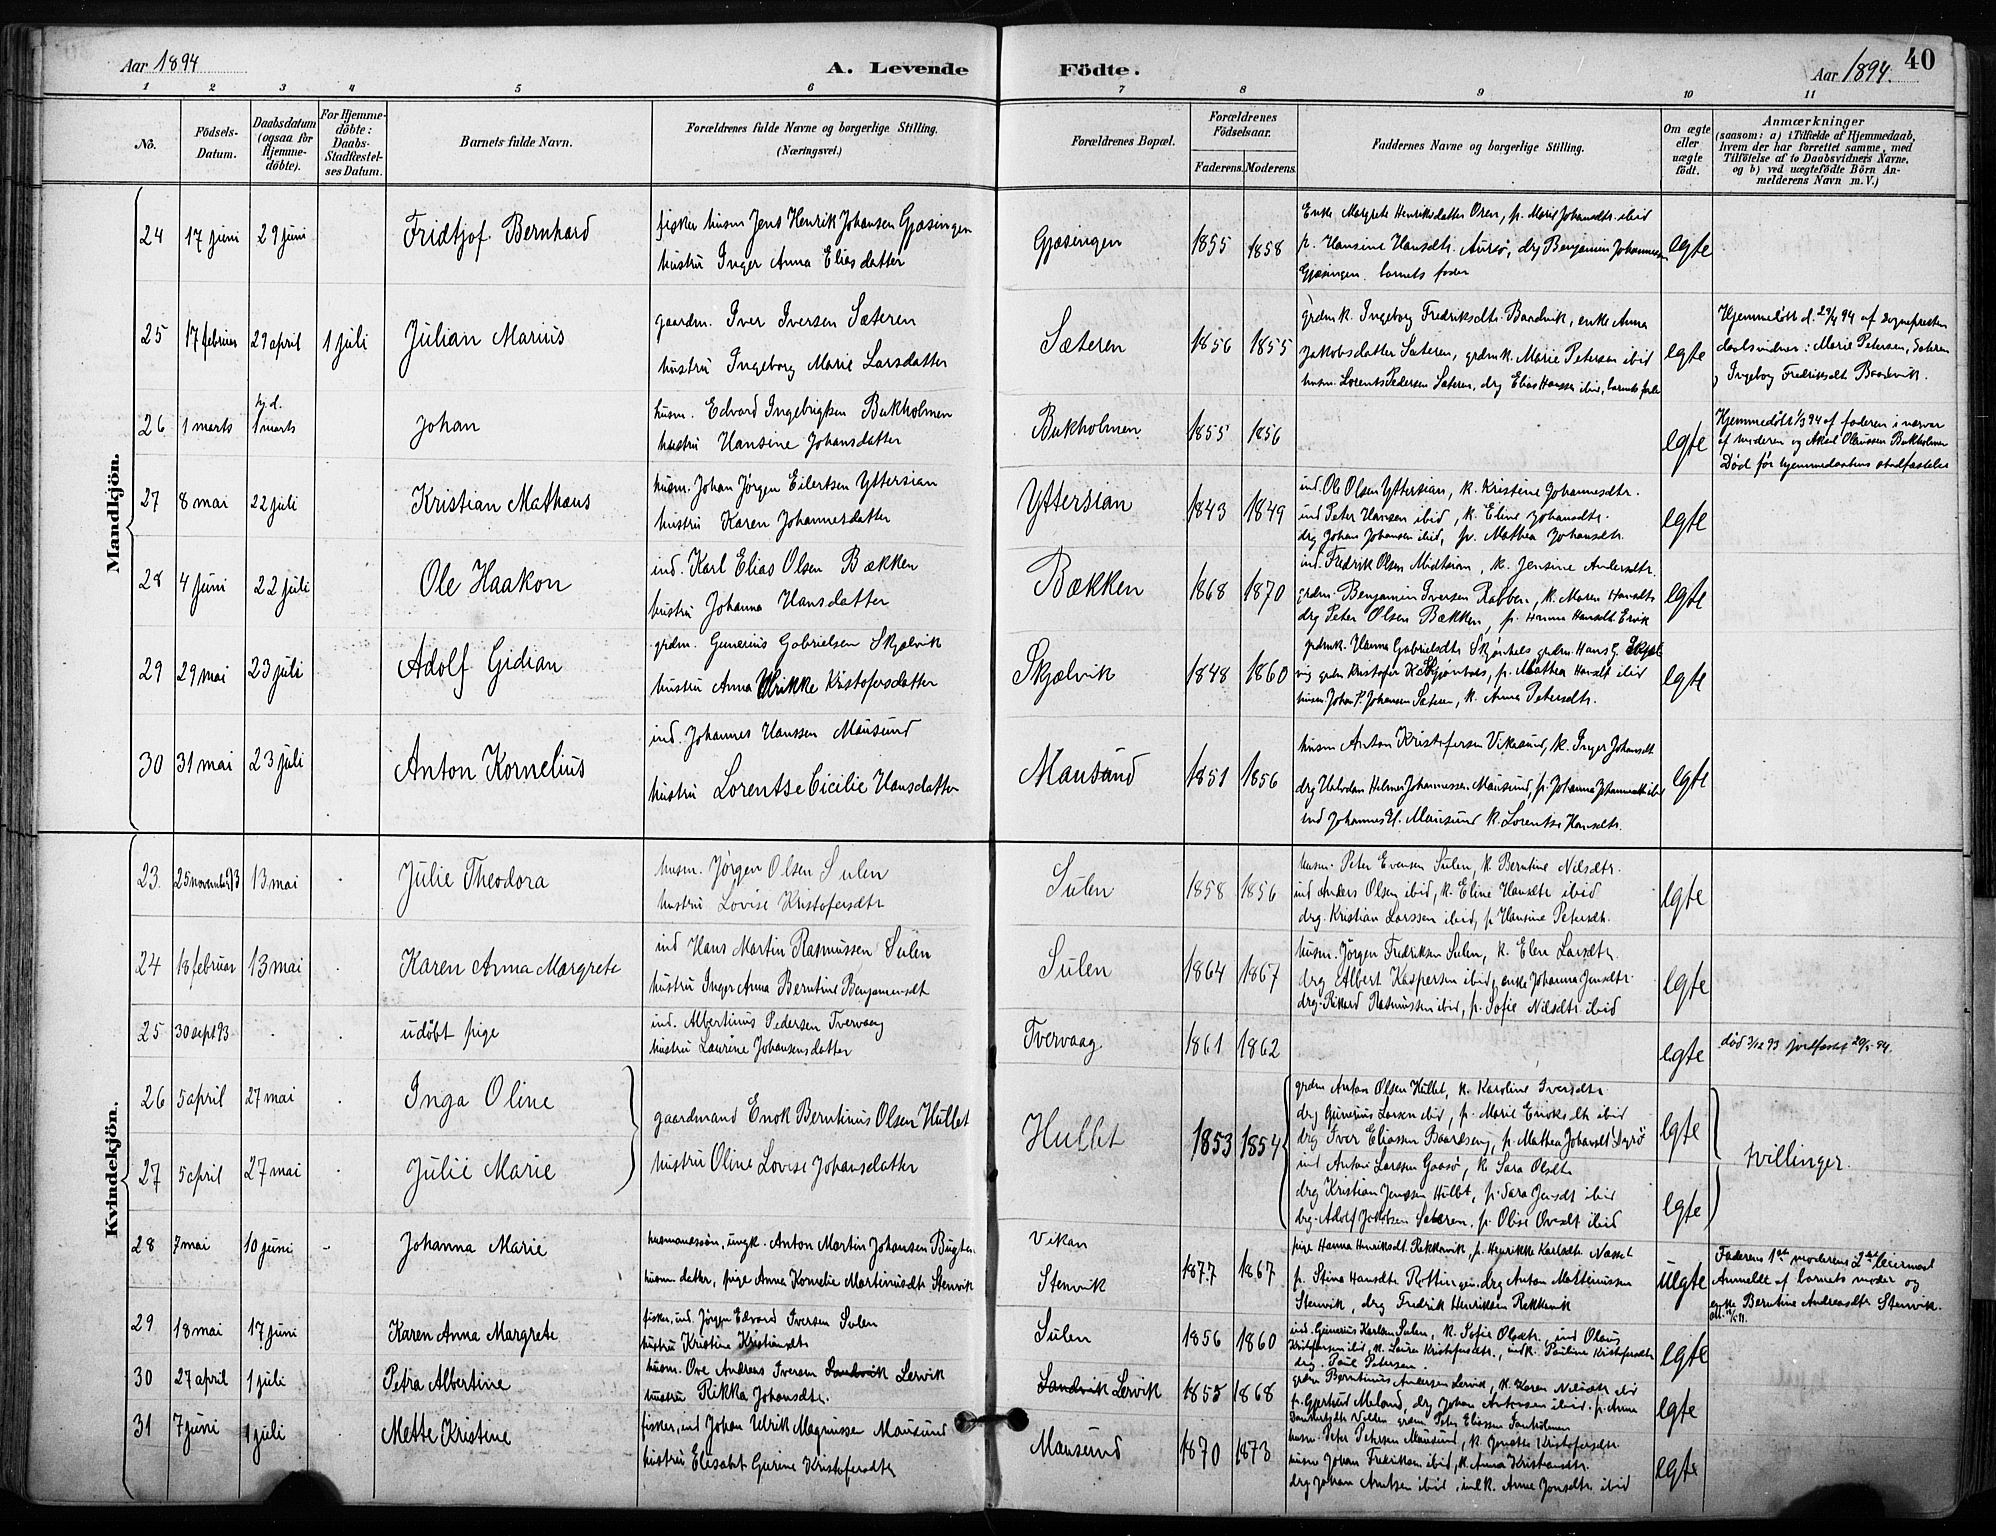 Aar 1894
A. Levende Födte.
Aar 1894.
40
1 2 3 4 5 6 7 8 9 10 11
No.
Födsels-Datum.
Daabsdatum (ogsaa for Hjemme-döbte).
For Hjemme-döbte: Daabs-Stadfæstel-ses Datum.
Barnets fulde Navn.
Forældrenes fulde Navne og borgerlige Stilling.
(Næringsvei.)
Forældrenes Bopæl.
Forældrenes Födselsaar.
Faderens. Moderens.
Faddernes Navne og borgerlige Stilling.
Om ægte eller uægte födt.
Anmærkninger
(saasom: a) i Tilfælde af Hjemmedaab, hvem der har forrettet samme, med Tilföielse af to Daabsvidners Navne, og b) ved uægtefödte Börn An-melderens Navn m. V.)
Mandkjön.
24 17 juni 29 juni Fridtjof Bernhard
fisker husm Jens Henrik Johansen Gjæsingen
hustru Inger Anna Eliasdatter
Gjæsingen 1855 1858
Enke Margrete Henriksdatter Oren, p. Marie Johansdtr ibid
p. Hansine Hansdtr. Aursø, drg Benjamin Johannessen
Gjæsingen, barnets fader
egte
25 17 februar 29 april 1 juli Julian Marius
gaardm. Iver Iversen Sæteren
hustru Ingeborg Marie Larsdatter
Sæteren 1856 1855
grdmk. Ingeborg Fredriksdtr. Baadvik, enke Anna
Jakobsdatter Sæteren, grdmk. Marie Petersen ibid
husm. Lorents Pedersen Sæteren, drg Elias Hansen ibid, barnets fader
egte
Hjemmedøbt d. 29/4 94 af sognepresten
daabsvidner: Marie Petersen, Sæteren
og Ingeborg Fredriksdtr Baadvik.
26 1 marts hj.d. 1 marts Johan
husm. Edvard Ingebrigtsen Bukholmen
hustru Hansine Johansdatter
Bukholmen 1855 1856
egte
Hjemmedøbt 1/3 94 af faderen i nærvær
af moderen og Aksel Olaussen Bukholmen
Død før hjemmedaabens stadfæstelse
27 8 mai 22 juli Kristian Mathæus
husm. Johan Jørgen Eilertsen Yttersian
hustru Karen Johannesdatter
Yttersian 1843 1849
ind. Ole Olsen Yttersian, k. Kristine Johannesdtr.
ind Peter Hansen ibid, k. Eline Johansdtr.
drg Johan Johansen ibid, p. Mathea Johansdtr.
egte
28 4 juni 22 juli Ole Haakon
ind. Karl Elias Olsen Bækken
hustru Johanna Hansdatter
Bækken 1868 1870
ind. Fredrik Olsen Midtsian, k. Jensine Andersdtr.
grdm. Benjamin Iversen Rabben, k. Maren Hansdtr
drg Peter Olsen Bækken, p. Anna Hansdtr Ervik
egte
29 29 mai 23 juli Adolf Gidian
grdm. Gunerius Gabrielsen Skjælvik
hustru Anna Ulrikke Kristofersdatter
Skjælvik 1848 1860
grdmk. Hanna Gabrielsdtr Skjønhals grdm. Hans G. Skjæl-
vig grdm Kristofer H. Skjønhals, p. Mathea Hansdt ibid
husm. Johan P. Johansen Sæteren, k. Anna Petersdtr.
egte
30 31 mai 23 juli Anton Kornelius
ind. Johannes Hanssen Mausund
hustru Lorentse Cicilie Hansdatter
Mausund 1851 1856
husm Anton Kristofersen Vikasund, k. Inger Johansdt
drg Halvdan Helmer Johannessen Mausund, p. Johanna Johannesdt ibid
ind Johannes El. Mausund k. Lorentse Hansdtr.
egte
Kvindekjön.
23. 25 november 93 13 mai Julie Theodora
husm. Jørgen Olsen Sulen
hustru Lovise Kristofersdtr
Sulen 1858 1856
husm. Peter Evensen Sulen, k. Berntine Nilsdtr.
ind Anders Olsen ibid, k. Eline Hansdtr ibid
drg. Kristian Larssen ibid, p. Hansine Petersdt.
egte
24 18 februar 13 mai Karen Anna Margrete
ind Hans Martin Rasmussen Sulen
hustru Inger Anna Berntine Benjaminsdt
Sulen 1864 1867
husm. Jørgen Fredriksen Sulen, k. Elen Larsdtr.
drg Albert Kaspersen ibid, enke Johanna Jensdtr.
drg. Rikard Rasmussen ibid, p. Sofie Nilsdtr. ibid
egte
25 30 sept 93 udøbt pige
ind. Albertinus Pedersen Tvervaag
hustru Laurine Johansensdatter
Tvervaag 1861 1862
egte
død 2/12 93 jordfæstet 20/5 94.
26 5 april 27 mai Inga Oline
27 5 april 27 mai Julie Marie
gaardmand Enok Berntinus Olsen Hullet
hustru Oline Lovise Johansdatter
Hullet 1853 1854
grdm Anton Olsen Hullet, k. Karoline Iversdtr
drg Gunerius Larsen ibid, p. Marie Enoksdtr ibid
drg Iver Eliassen Baardseng, p. Mathea Johansdt Dyrø
ind Anton Larssen Gaasø, k Sara Olsdtr
drg Kristian Jenssen Hullet, p. Sara Jensdt ibid
drg. Adolf Jakobsen Sæteren, p. Olise Ovesdt ibid
egte
egte
tvillinger.
28 7 mai 10 juni Johanna Marie
husmandssøn, ungk. Anton Martin Johansen Bugten
husm.datter, pige Anna Kornelie Martinusdt Stenvik
Vikan
Stenvik
1877 1867
pige Hanna Henriksdt. Rekkavik, p. Henrikke Karlsdtr. Næsset
p. Stina Hansdtr Rottingen drg Anton Mattinussen
Stenvik, drg Fredrik Henriksen Rekkavik
uegte
Faderens 1ste moderens 2det leiermaal
Anmeldt af barnets moder og
enke Berntine Andreasdtr Stenvik.
29 18 mai 17 juni Karen Anna Margrete
fisker, ind. Jørgen Edvard Iversen Sulen
hustru Kristine Kristiansdtr
Sulen 1856 1860
ind. Gunerius Karlsen Sulen, k. Sofie Olsdtr., ind Olaus
Kristofersen ibid, k. Laura Kristofersdtr., indk. Pauline Kristofersdtr
drg. Paul Petersen.
egte
30 27 april 1 juli Petra Albertine
husm. Ove Andreas Iversen Sandvik Lervik
hustru Rikka Johansdtr.
Sandvik Lervik 1855 1868
grdm Berntinus Andersen Lervik, k. Karen Nilsdtr ibid
p. Gjertrud Meland, drg Johan Antonsen ibid. p. Anna
grdm Peter Eliassen
egte
31 7 juni 1 juli Mette Kristine
fisker, ind Johan Ulrik Magnussen Mausund
hustru Elisabet Gurine Kristofersdtr
Mausund 1870 1873
husm. Peter Petersen Mausund, k. Jonette Kristofersdtr.
husm Johan Fredriksen ibid, k. Anna Kristiansdtr.
drg Johan Arntsen ibid, indk. Anne Jonsdtr. ibid
egte